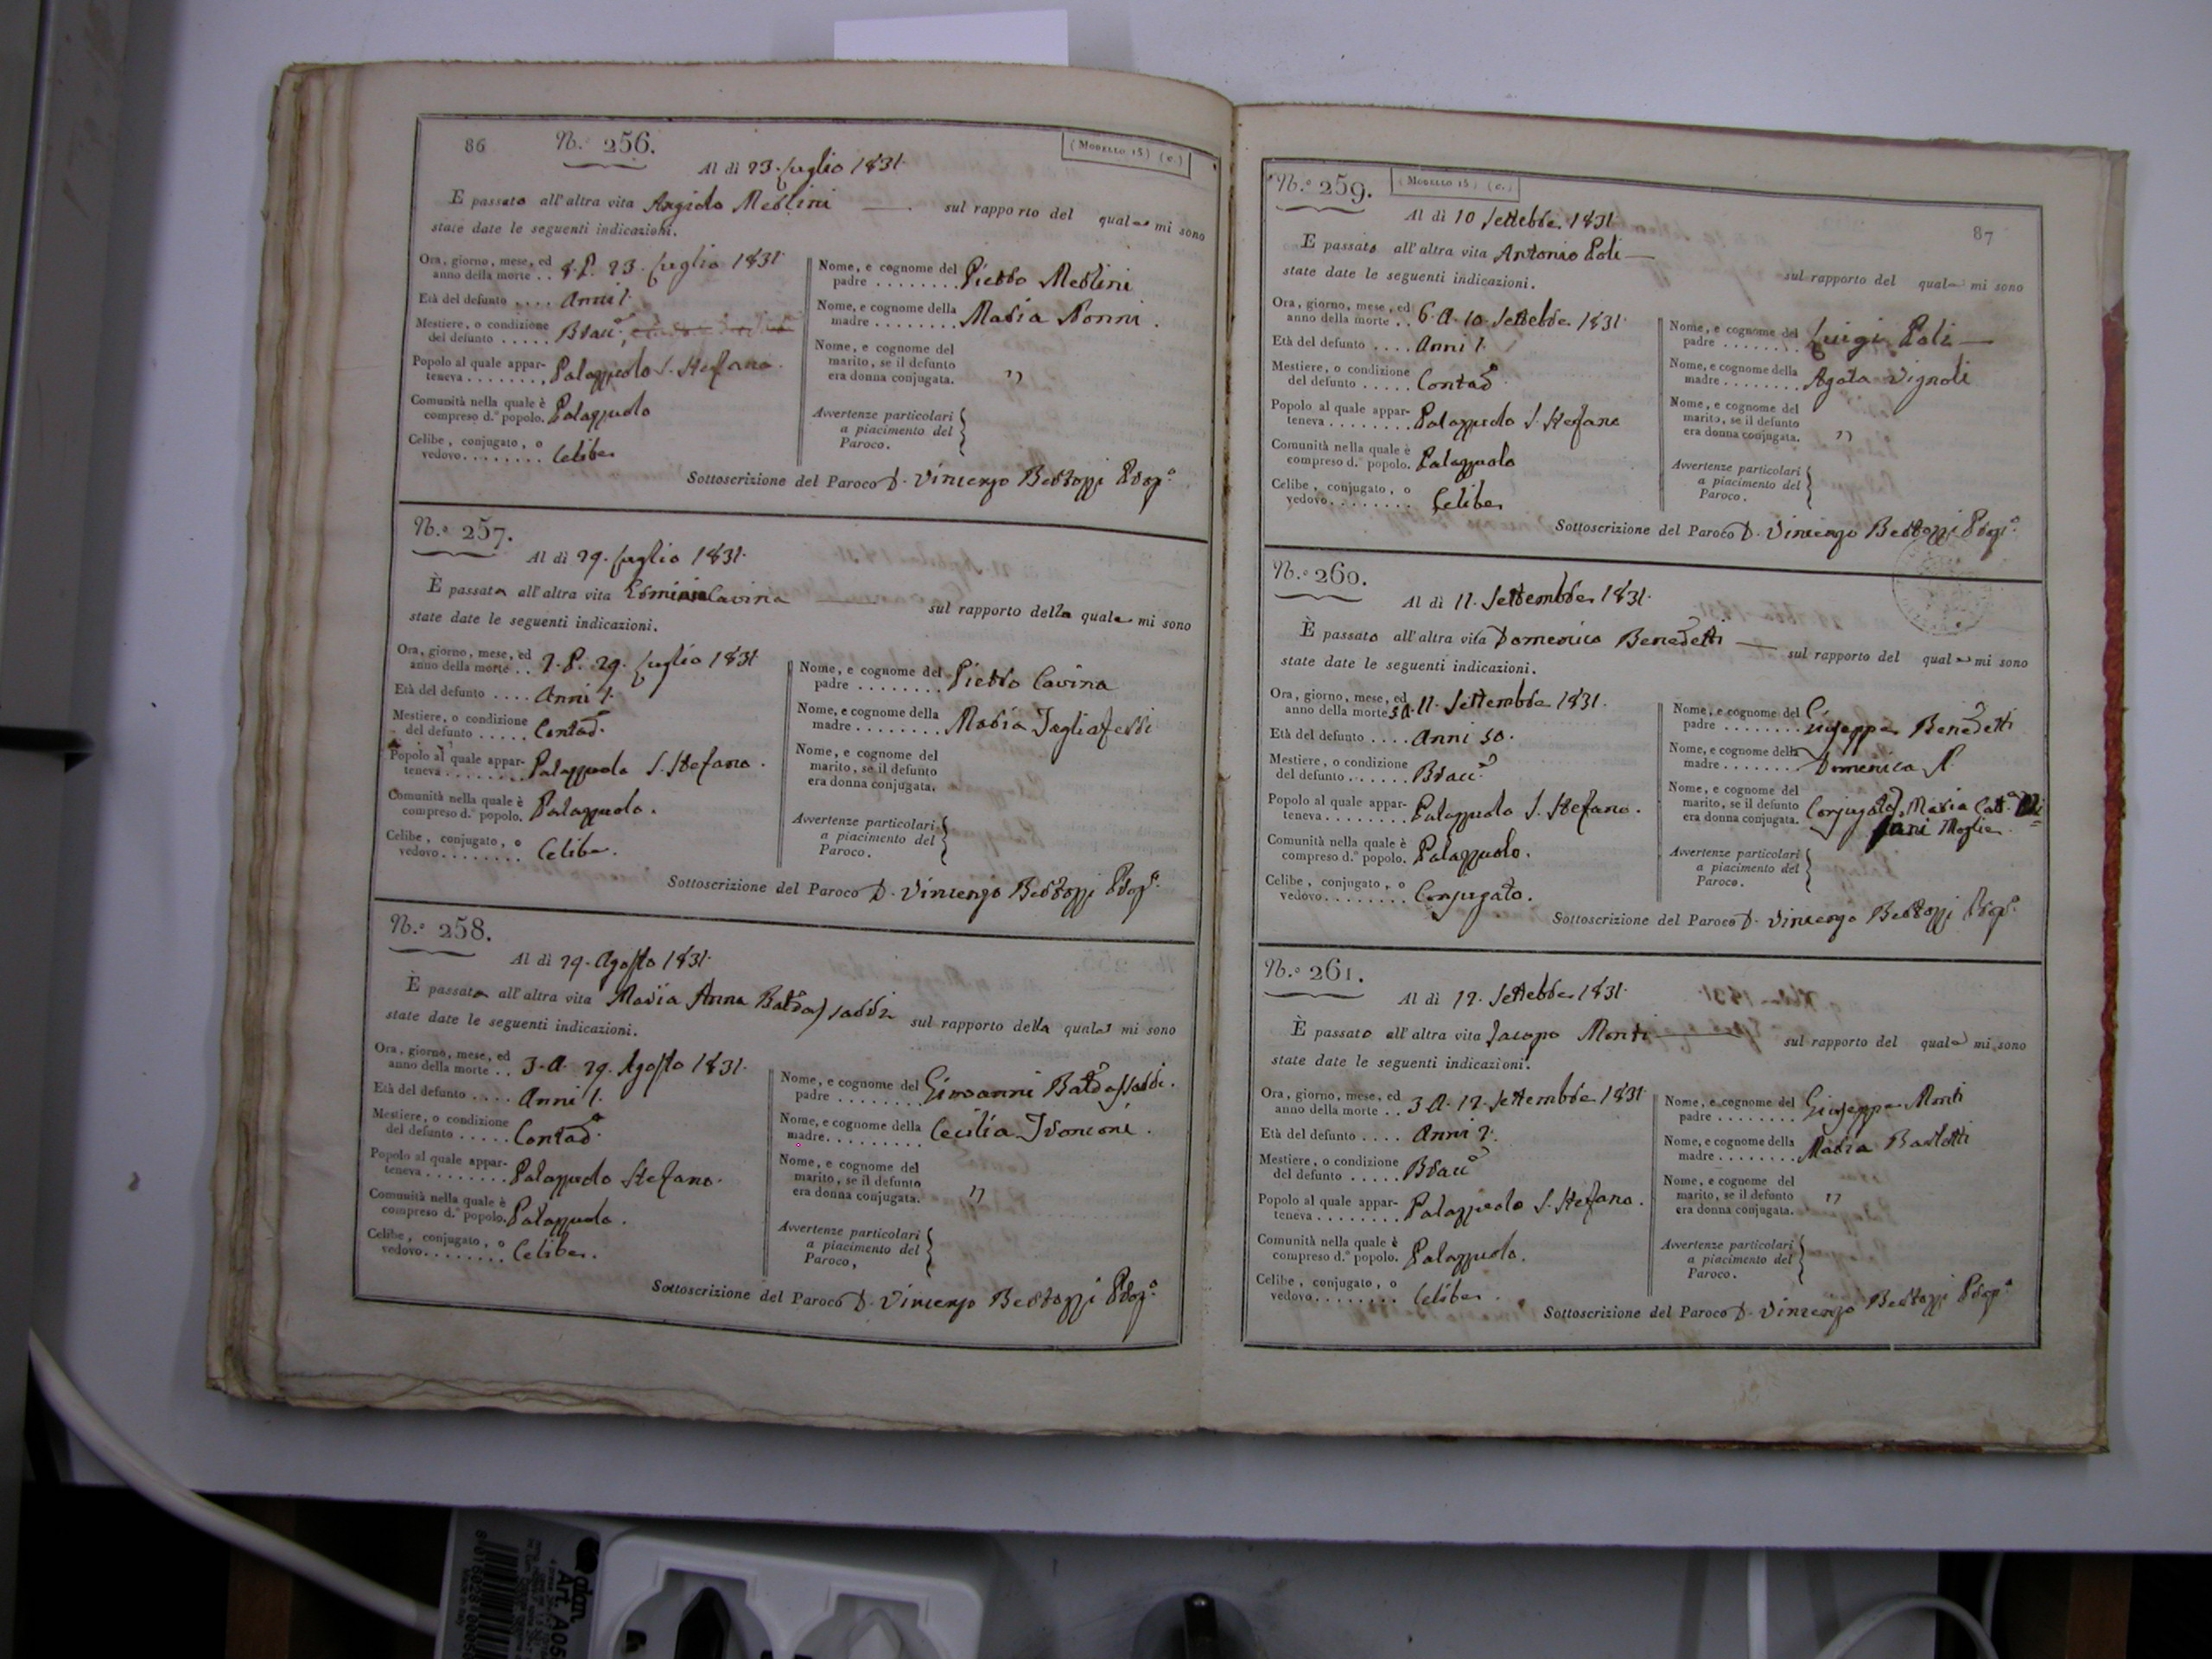 86
N.° 256.
(Modello 15) (c.)
Al dì 23. Luglio 1831.
E passato all'altra vita Angiolo Merlini sul rapporto del quale mi sono
state date le seguenti indicazioni.
Ora, giorno, mese, ed
anno della morte . . 8. P. 23. Luglio 1831
Età del defunto . . . . Anni 1.
Mestiere, o condizione
del defunto . . . . . Bracc.
Popolo al quale appar-
teneva . . . . . . . . Palazzuolo S. Stefano.
Comunità nella quale è
compreso d.° popolo. Palazzuolo
Celibe, conjugato, o
vedovo. . . . . . . . Celibe
Nome, e cognome del
padre . . . . . . . . Pietro Merlini
Nome, e cognome della
madre . . . . . . . . Maria Nonni.
Nome, e cognome del
marito, se il defunto
era donna conjugata. "
Avvertenze particolari
a piacimento del
Paroco.
Sottoscrizione del Paroco D. Vincenzo Bertozzi Prop.°
N.° 257.
Al dì 29. Luglio 1831.
È passata all'altra vita Erminia Cavina sul rapporto della quale mi sono
state date le seguenti indicazioni.
Ora, giorno, mese, ed
anno della morte . . 2. P. 29. Luglio 1831
Età del defunto . . . . Anni
Mestiere, o condizione
del defunto . . . . . Contad.
Popolo al quale appar-
teneva . . . . . . . . Palazzuolo S. Stefano.
Comunità nella quale è
compreso d.° popolo. Palazzuolo.
Celibe, conjugato, o
vedovo. . . . . . . . Celibe.
Nome, e cognome del
padre . . . . . . . . Pietro Cavina
Nome, e cognome della
madre . . . . . . . . Maria Tagliaferri
Nome, e cognome del
marito, se il defunto
era donna conjugata.
Avvertenze particolari
a piacimento del
Paroco.
Sottoscrizione del Paroco D. Vincenzo Bertozzi Prop.°
N.° 258.
Al dì 29. Agosto 1831.
È passata all'altra vita Maria Anna Baldassarri sul rapporto della quale mi sono
state date le seguenti indicazioni.
Ora, giorno, mese, ed
anno della morte . . 3. A. 29. Agosto 1831.
Età del defunto . . . . Anni 1.
Mestiere, o condizione
del defunto . . . . . Contad.
Popolo al quale appar-
teneva . . . . . . . . Palazzuolo Stefano.
Comunità nella quale è
compreso d.° popolo. Palazzuolo.
Celibe, conjugato, o
vedovo. . . . . . . . Celibe.
Nome, e cognome del
padre . . . . . . . . Giovanni Baldassarri.
Nome, e cognome della
madre. . . . . . . . . Cecilia Tronconi.
Nome, e cognome del
marito, se il defunto
era donna conjugata. "
Avvertenze particolari
a piacimento del
Paroco,
Sottoscrizione del Paroco D. Vincenzo Bertozzi Prop.°
N.° 259.
(Modello 15) (c.)
87
Al dì 10 Settebre 1831
E passato all'altra vita Antonio Poli
sul rapporto del quale mi sono
state date le seguenti indicazioni.
Ora, giorno, mese, ed
anno della morte . . 6. A. 10. Settebre 1831.
Età del defunto . . . . Anni 1.
Mestiere, o condizione
del defunto . . . . . Contad.
Popolo al quale appar-
teneva . . . . . . . . Palazzuolo S. Stefano
Comunità nella quale è
compreso d.° popolo. Palazzuolo
Celibe, conjugato, o
vedovo. . . . . . . . Celibe
Nome, e cognome del
padre . . . . . . . . Luigi Poli
Nome, e cognome della
madre . . . . . . . . Agata Vignoli
Nome, e cognome del
marito, se il defunto
era donna conjugata. "
Avvertenze particolari
a piacimento del
Paroco.
Sottoscrizione del Paroco D. Vincenzo Bertozzi Prop.°
N.° 260.
Al dì 11. Settembre 1831.
È passato all'altra vita Domenico Benedetti sul rapporto del quale mi sono
state date le seguenti indicazioni.
Ora, giorno, mese, ed
anno della morte 5 A. 11. Settembre 1831.
Età del defunto . . . . Anni 50.
Mestiere, o condizione
del defunto . . . . . . Bracc.
Popolo al quale appar-
teneva . . . . . . . . Palazzuolo S. Stefano.
Comunità nella quale è
compreso d.° popolo. Palazzuolo.
Celibe, conjugato, o
vedovo. . . . . . . . Conjugato.
Nome, e cognome del
padre . . . . . . . . Giuseppe Benedetti
Nome, e cognome della
madre . . . . . . . . Domenica
Nome, e cognome del
marito, se il defunto
era donna conjugata. Conjugato, Maria Catt.a
Moglie.
Avvertenze particolari
a piacimento del
Paroco.
Sottoscrizione del Paroco D. Vincenzo Bertozzi Prop.°
N.° 261.
Al dì 12. Settebre 1831.
È passato all'altra vita Jacopo Monti sul rapporto del quale mi sono
state date le seguenti indicazioni.
Ora, giorno, mese, ed
anno della morte . . 3 A. 12. Settembre 1831
Età del defunto . . . . Anni 2.
Mestiere, o condizione
del defunto . . . . . Bracc
Popolo al quale appar-
teneva . . . . . . . . Palazzuolo S. Stefano.
Comunità nella quale è
compreso d.° popolo. Palazzuolo.
Celibe, conjugato, o
vedovo. . . . . . . . Celibe.
Nome, e cognome del
padre . . . . . . . . Giuseppe Monti
Nome, e cognome della
madre . . . . . . . . Maria Bartolotti
Nome, e cognome del
marito, se il defunto "
era donna conjugata.
Avvertenze particolari
a piacimento del
Paroco.
Sottoscrizione del Paroco D. Vincenzo Bertozzi Prop.°
Art. A05